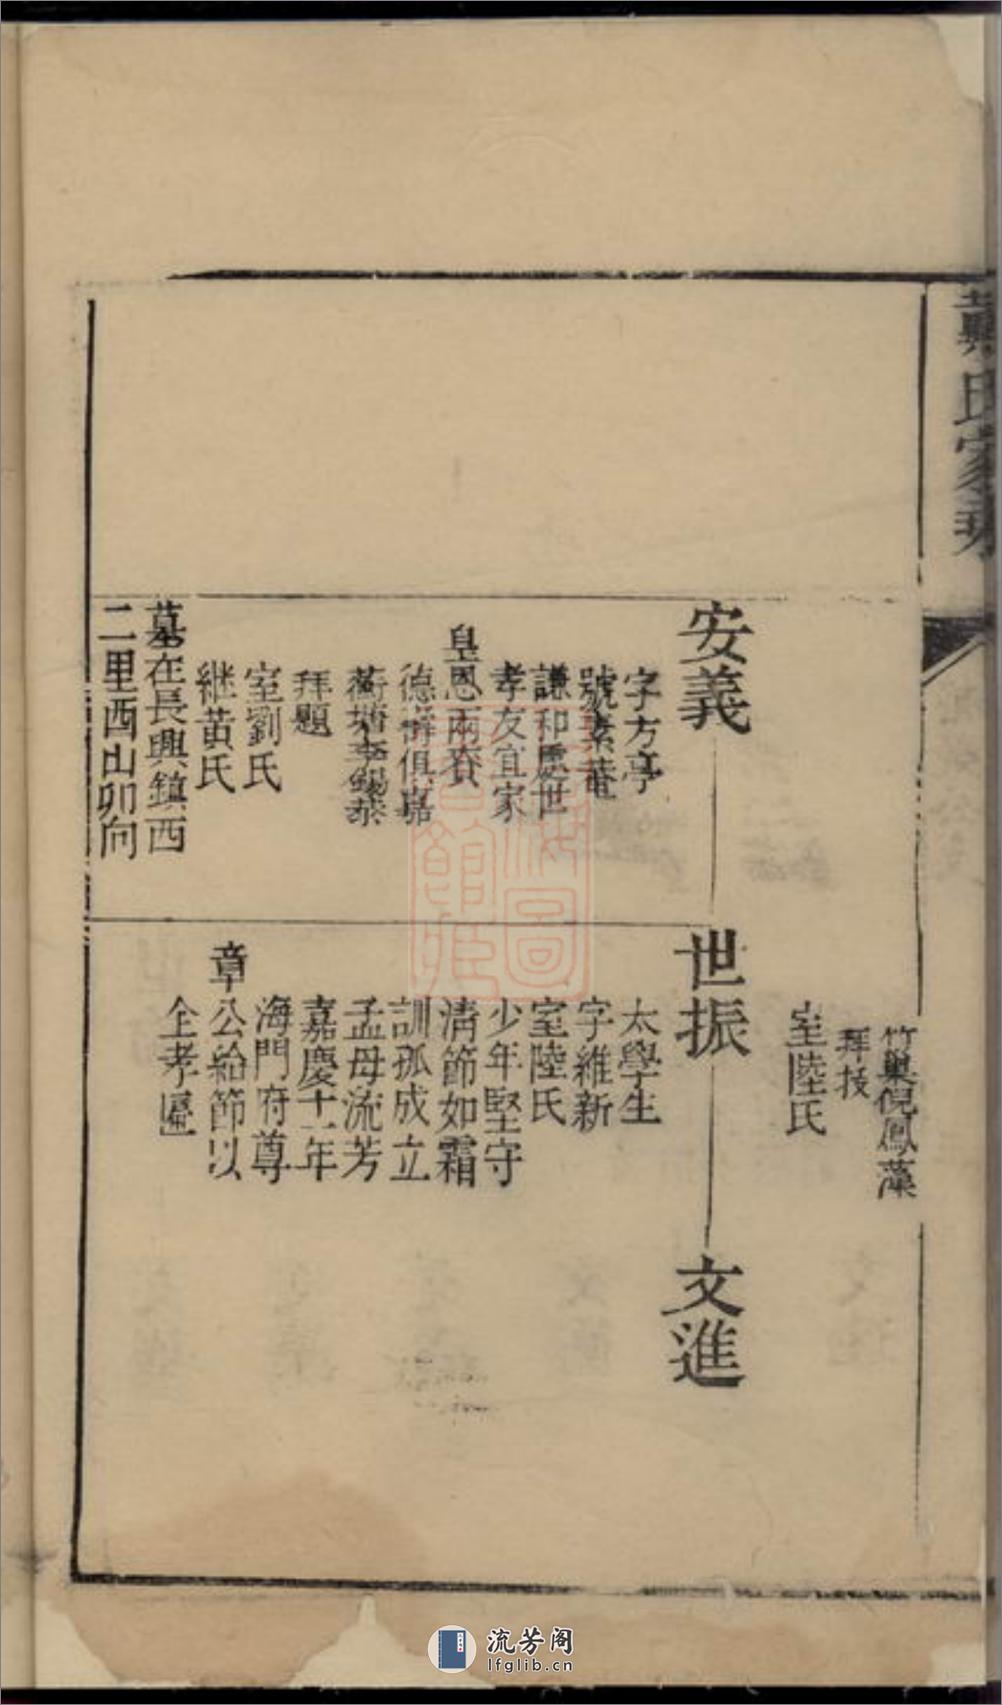 氏家乘
竹巢倪鳳藻
拜技
室陸氏
安義
字方亭
號素菴
謙和處世
孝友宜家
皇恩兩賚
德壽俱嘉
拜題
室劉氏
継黃氏
墓在長興鎮西
二里酉山卯向
世振
太學生
字維新
室陸氏
少年堅守
清節如霜
訓孤成立
孟母流芳
嘉慶十一年
海門府尊
章公給節以
全孝匾
文進
流芳阁
lfglib.cn